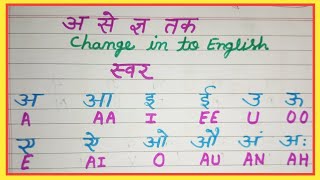 अ से ज्ञ तक
Change in to English
स्वर
अ आ इ ई उ ऊ
A AA I EE U OO
ए ऐ ओ औ अं अः
E AI O AU AN AH